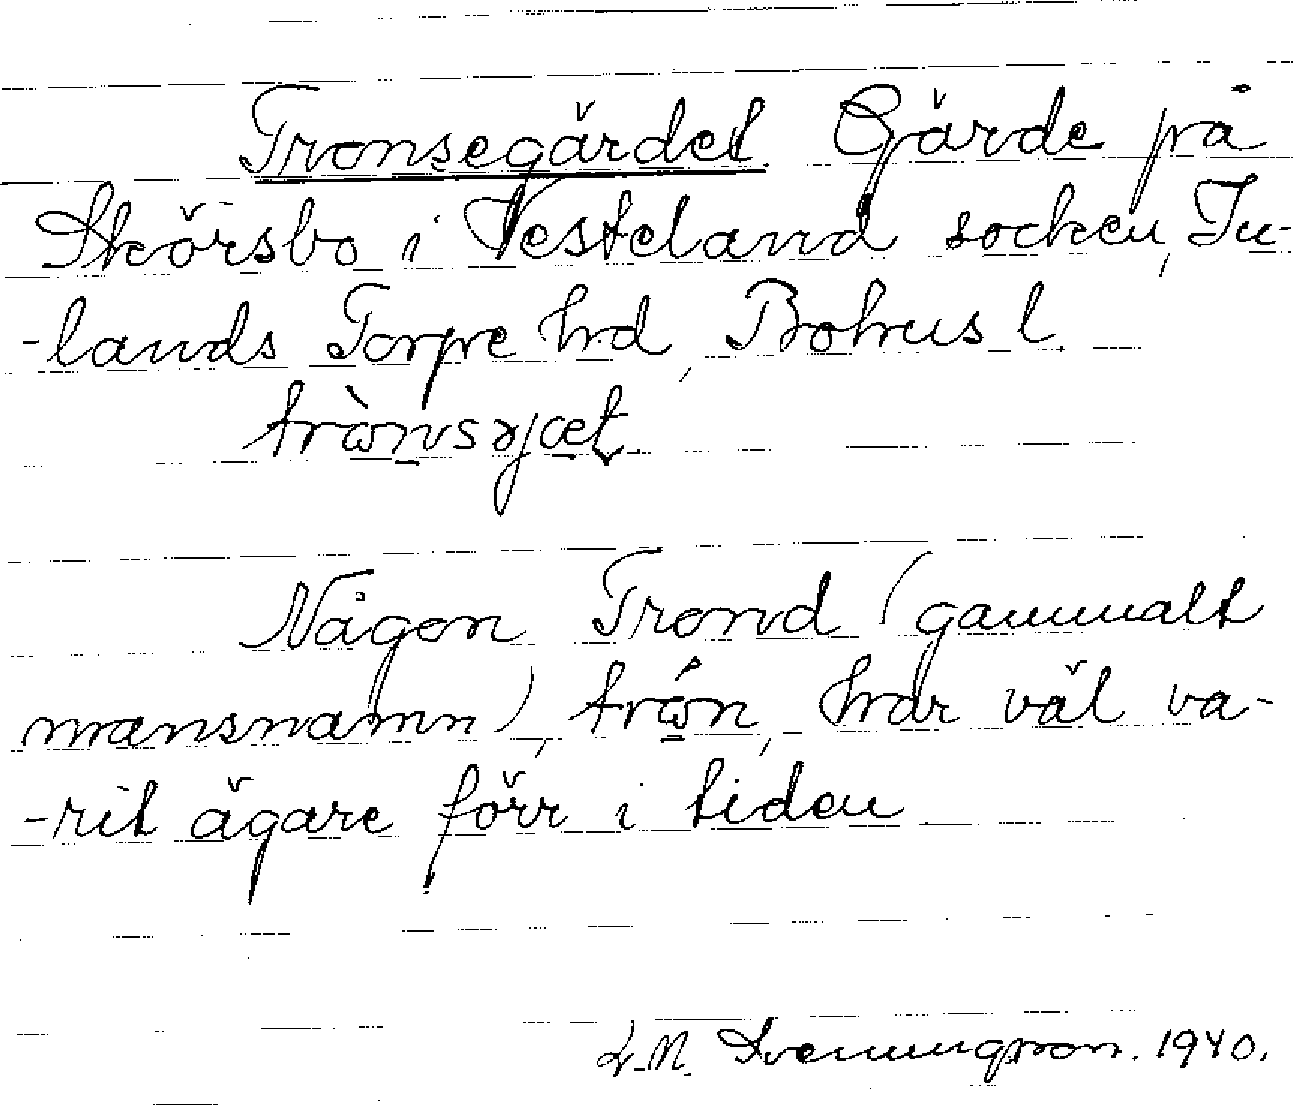 Tronsegärdet. Gärde på
Skörsbo i Vesteland socken, In-
-lands Torpe hd, Bohus l.
Någon Trond (gammalt
mansnamn), trón, har väl va-
-rit ägare förr i tiden
L. N. Svenungsson. 1940.